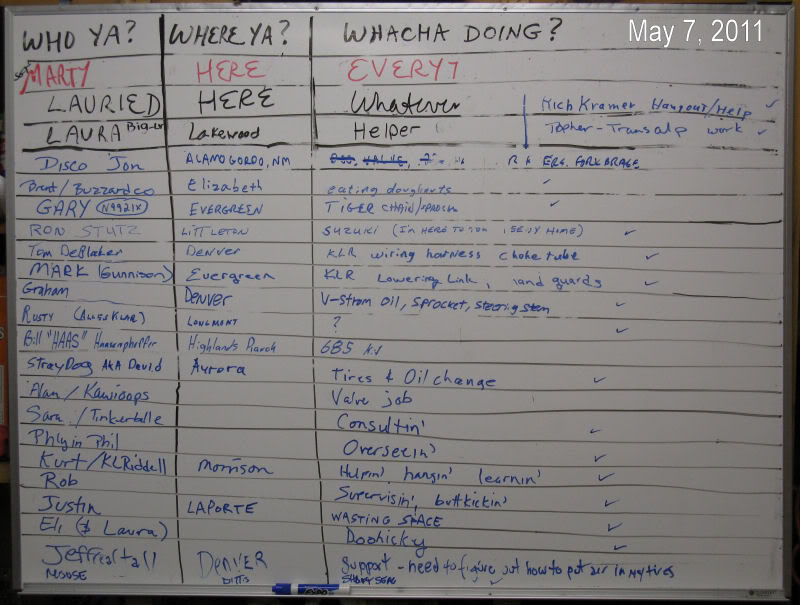 May 7, 2011
WHO YA? WHERE YA? WHACHA DOING?
MARTY HERE EVERYT
LAURIED HERE Whatever Rich Kramer Hangout/Help ✓
LAURA Lakewood Helper Topher - Transalp work ✓
Disco Jon ALAMOGORDO, NM
Brent/Buzzardco Elizabeth eating doughnuts ✓
GARY EVERGREEN TIGER CHAIN/ ✓
RON STUTZ LITTLETON SUZUKI (I'm HERE TO HOME) ✓
Tom DeBlaker Denver KLR wiring harness choke tube ✓
MARK (Gunnison) Evergreen KLR Lowering Link, guards ✓
Graham Denver V-Strom Oil, Sprocket, Steering stem ✓
RUSTY LONGMONT ? ✓
Bill "HAAS" Haasenpheffer Highlands Ranch 685 Kit
StrayDog AKA David Aurora Tires & Oil change ✓
Alan/Kawioops Valve job
Sara/Tinkerbelle Consultin' ✓
Phlyin Phil Overseein' ✓
Kurt/KLRiddell Morrison Helpin' hangin' learnin' ✓
Rob Supervisin', buttkickin' ✓
Justin LAPORTE WASTING SPACE ✓
Eli (& Laura) Doohicky ✓
Jeffrealtall DENVER Support - need to figure out how to put air in my tires
MOOSE DITTO ✓
EXPO